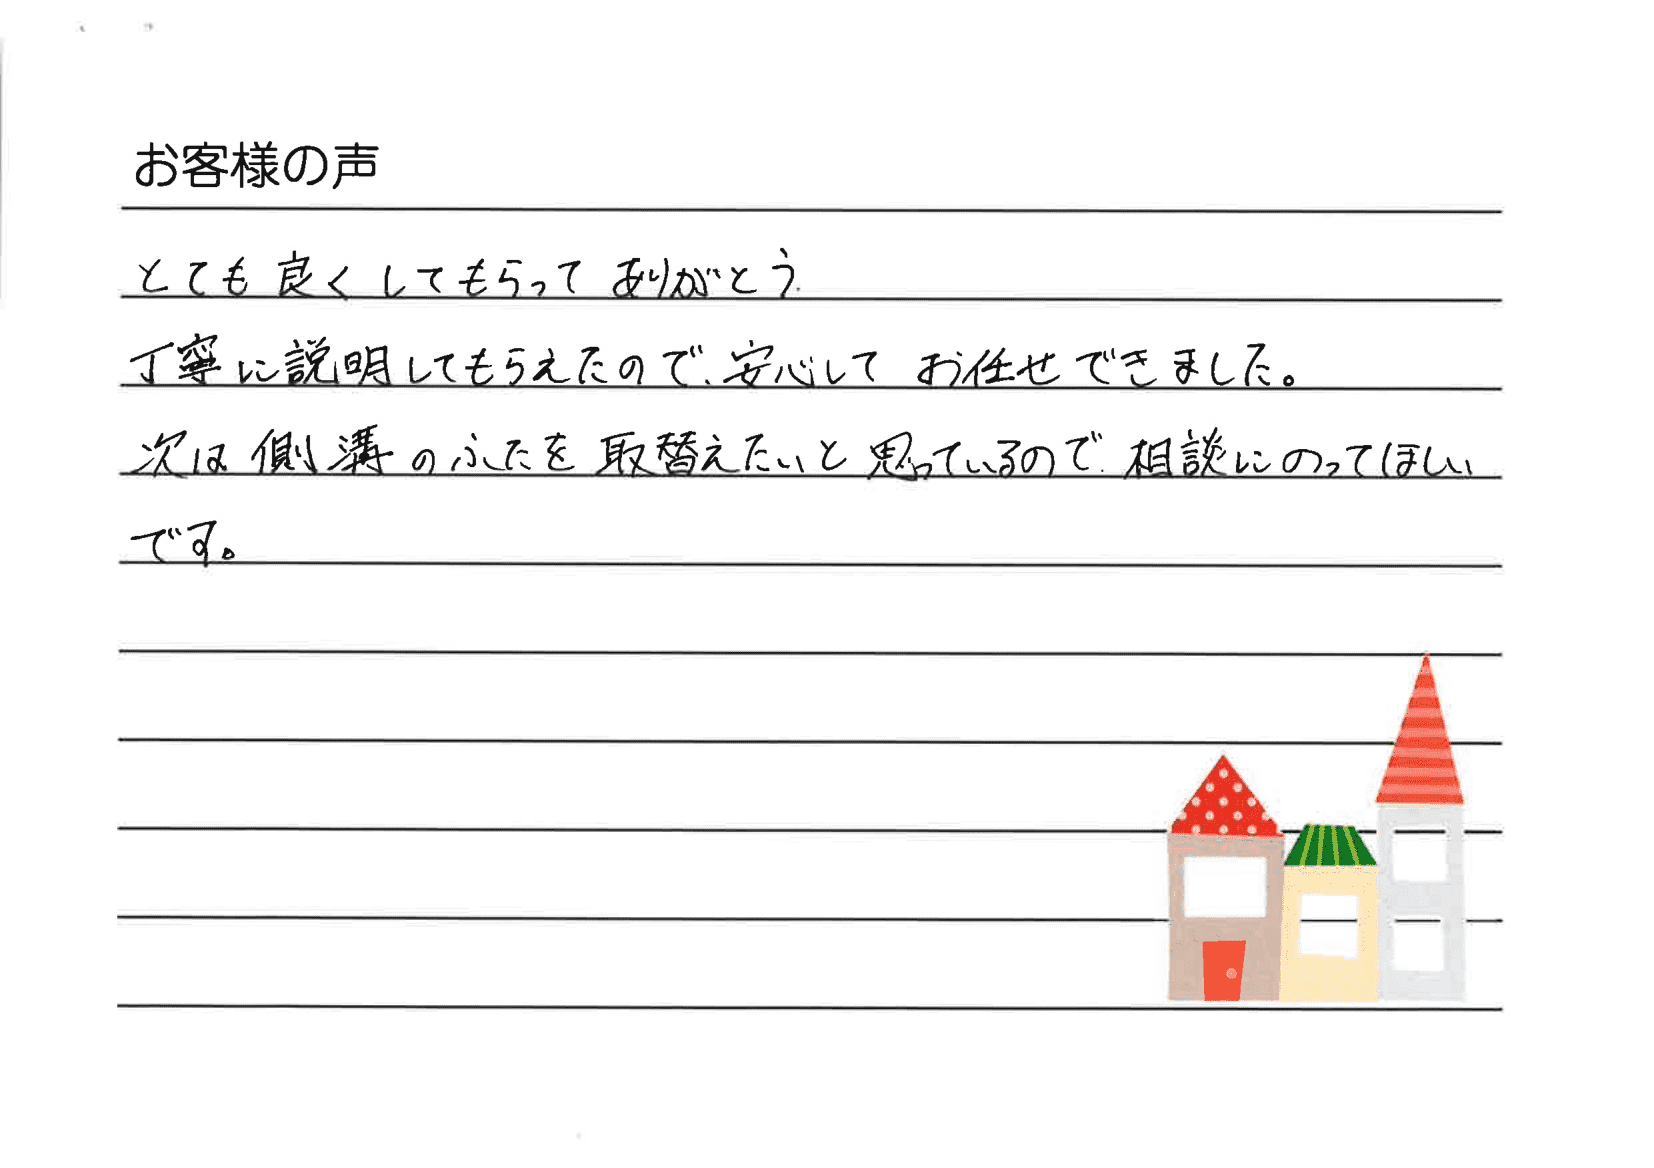 お客様の声
とても良くしてもらってありがとう.
丁寧に説明してもらえたので、安心してお任せできました。
次は側溝のふたを取替えたいと思っているので、相談にのってほしい
です。